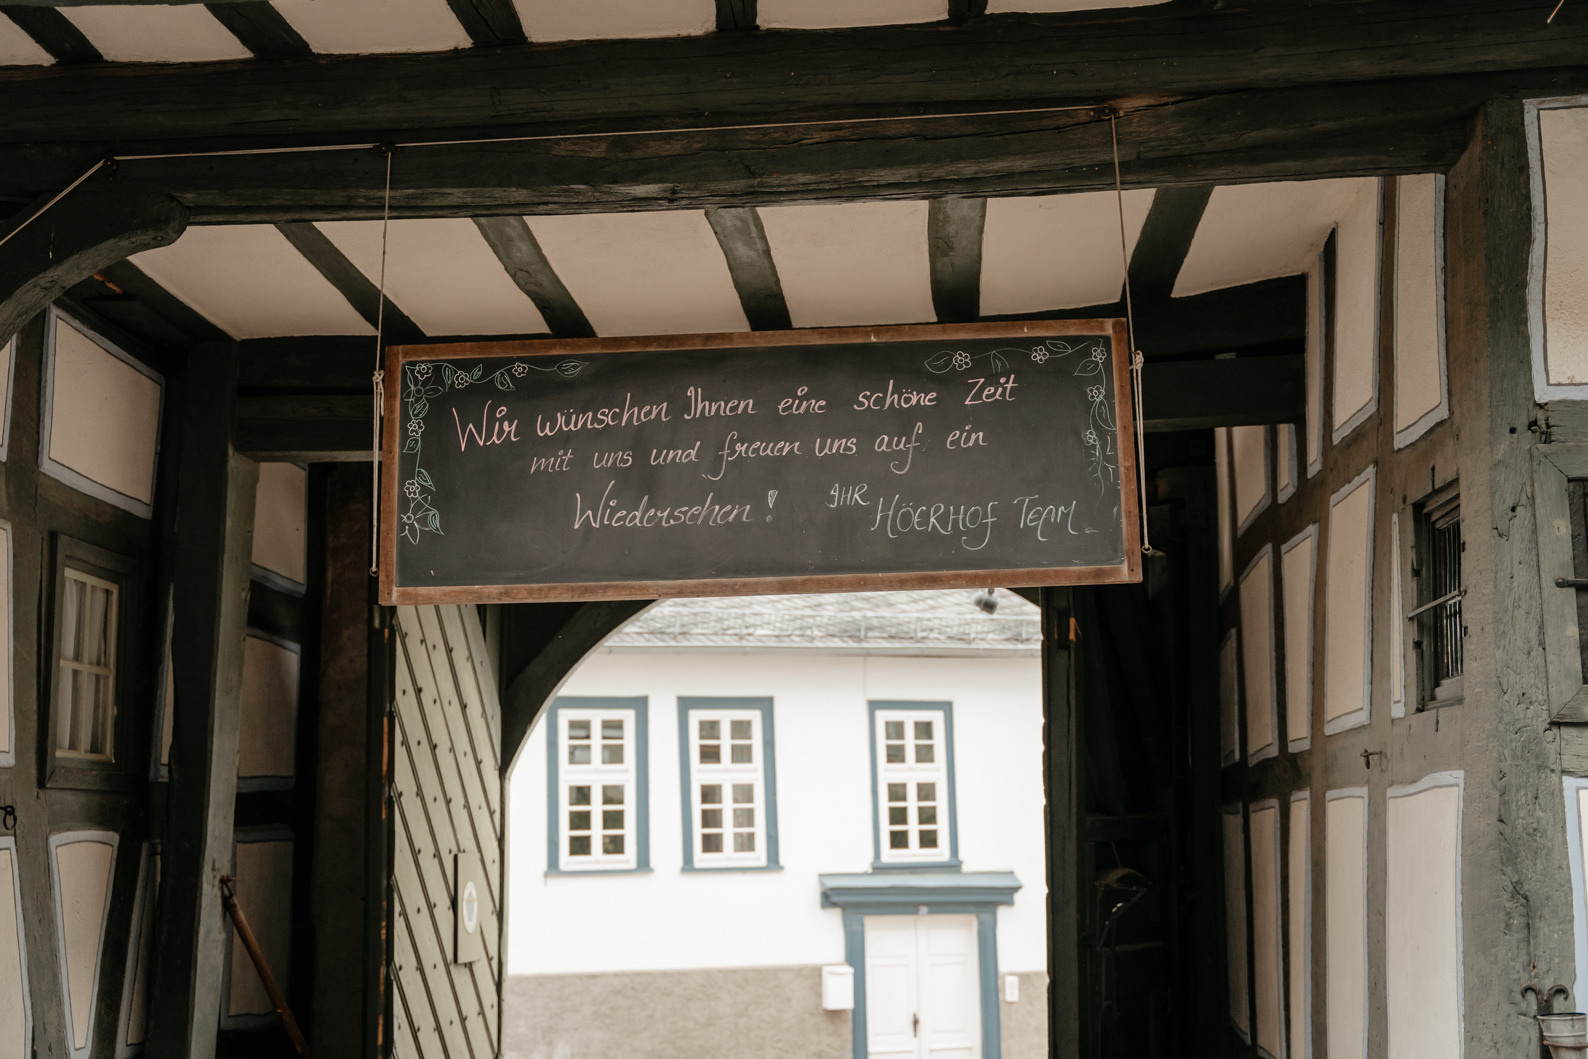 Wir wünschen Ihnen eine schöne Zeit
mit uns und freuen uns auf ein
Wiedersehen! IHR HÖERHOf TEAM